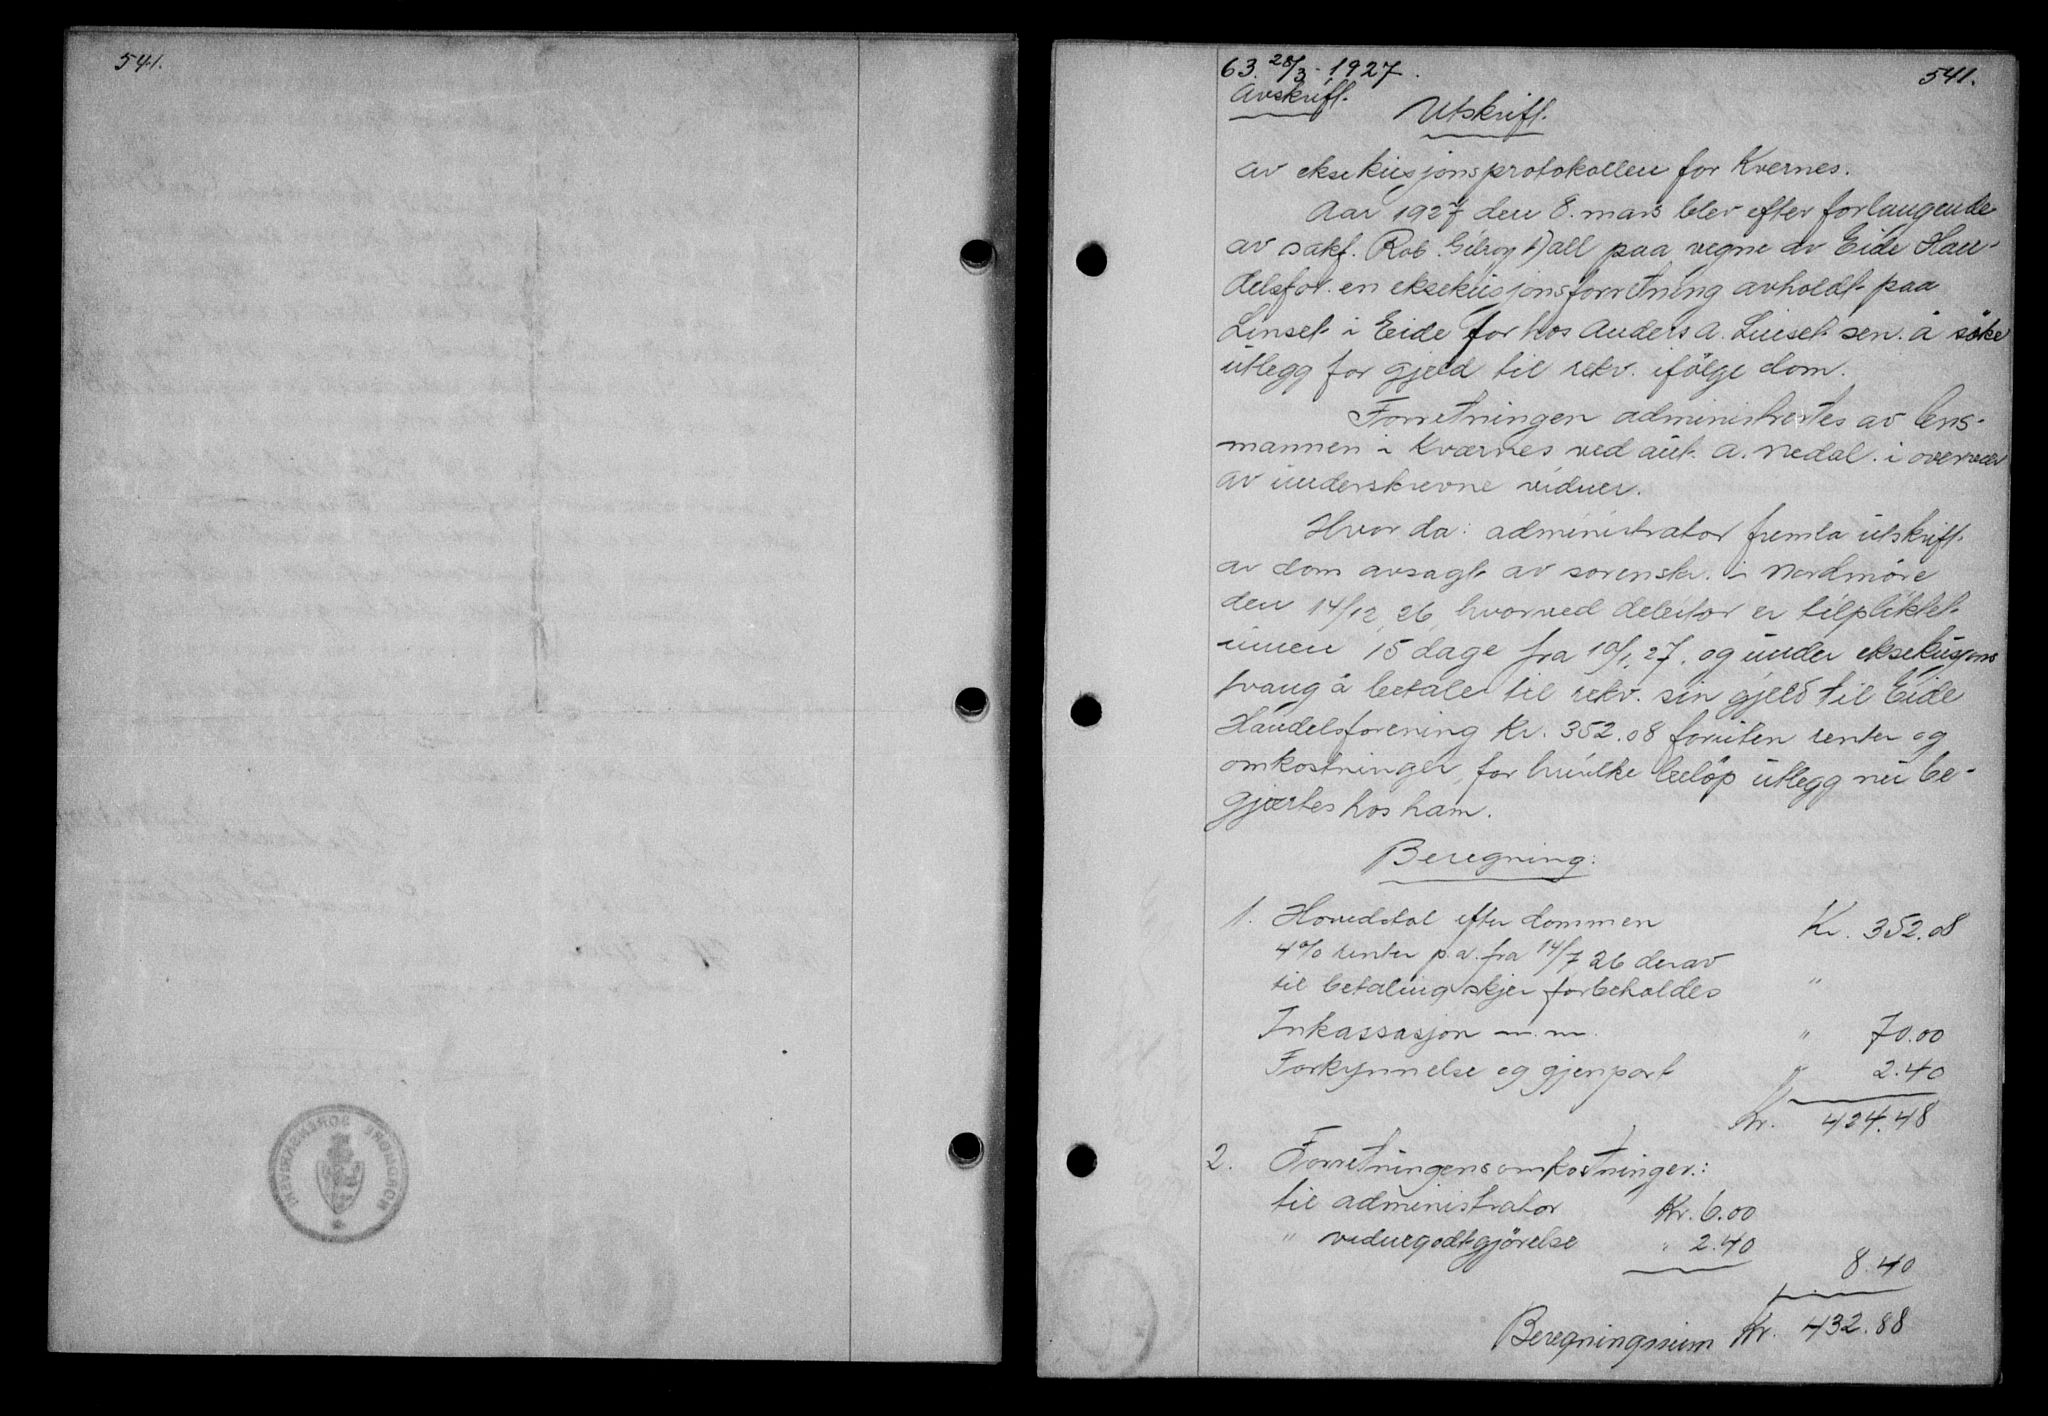 541.
NORDMØRE SORENSKRIVERI
63. 28/3-1927.
541.
Avskrift.
Utskrift.
av eksekusjonsprotokollen for Kvernes.
Aar 1927 den 8. mars blev efter forlangende
av sakf. Rob. Gilroy Dall paa vegne av Eide Han-
delsfor. en eksekusjonsforretning avholdt paa
Linset i Eide for hos Anders A. Linset sen. å søke
utlegg for gjeld til rekv. ifölge dom.
Forretningen administrertes av lens-
mannen i Kværnes ved aut. A. Nedal. i overvær
av underskrevne vidner.
Hvor da: administrator fremla utskrift
av dom avsagt av sorenskr. i Nordmöre
den 14/12 26 hvorved debitor er tilpliktet
innen 15 dage fra 10/1 27. og under eksekusjons
tvang å betale til rekv. sin gjeld til Eide
Handelsforening Kr. 352.08 foruten renter og
omkostninger, for hvilke belöp utlegg nu be-
gjærtes hos ham.
Beregning:
1. Hovedstol efter dommen Kr. 352.08
4% renter p.a. fra 14/7 26 derav
til betaling skjer forbeholdes "
Inkassasjon m.m. " 70.00
Forkynnelse og gjenpart " 2.40
Kr. 424.48
2. Forretningens omkostninger:
til administrator Kr. 6.00
" vidnegodtgjörelse " 2.40
8.40
Beregningssum Kr. 432.88